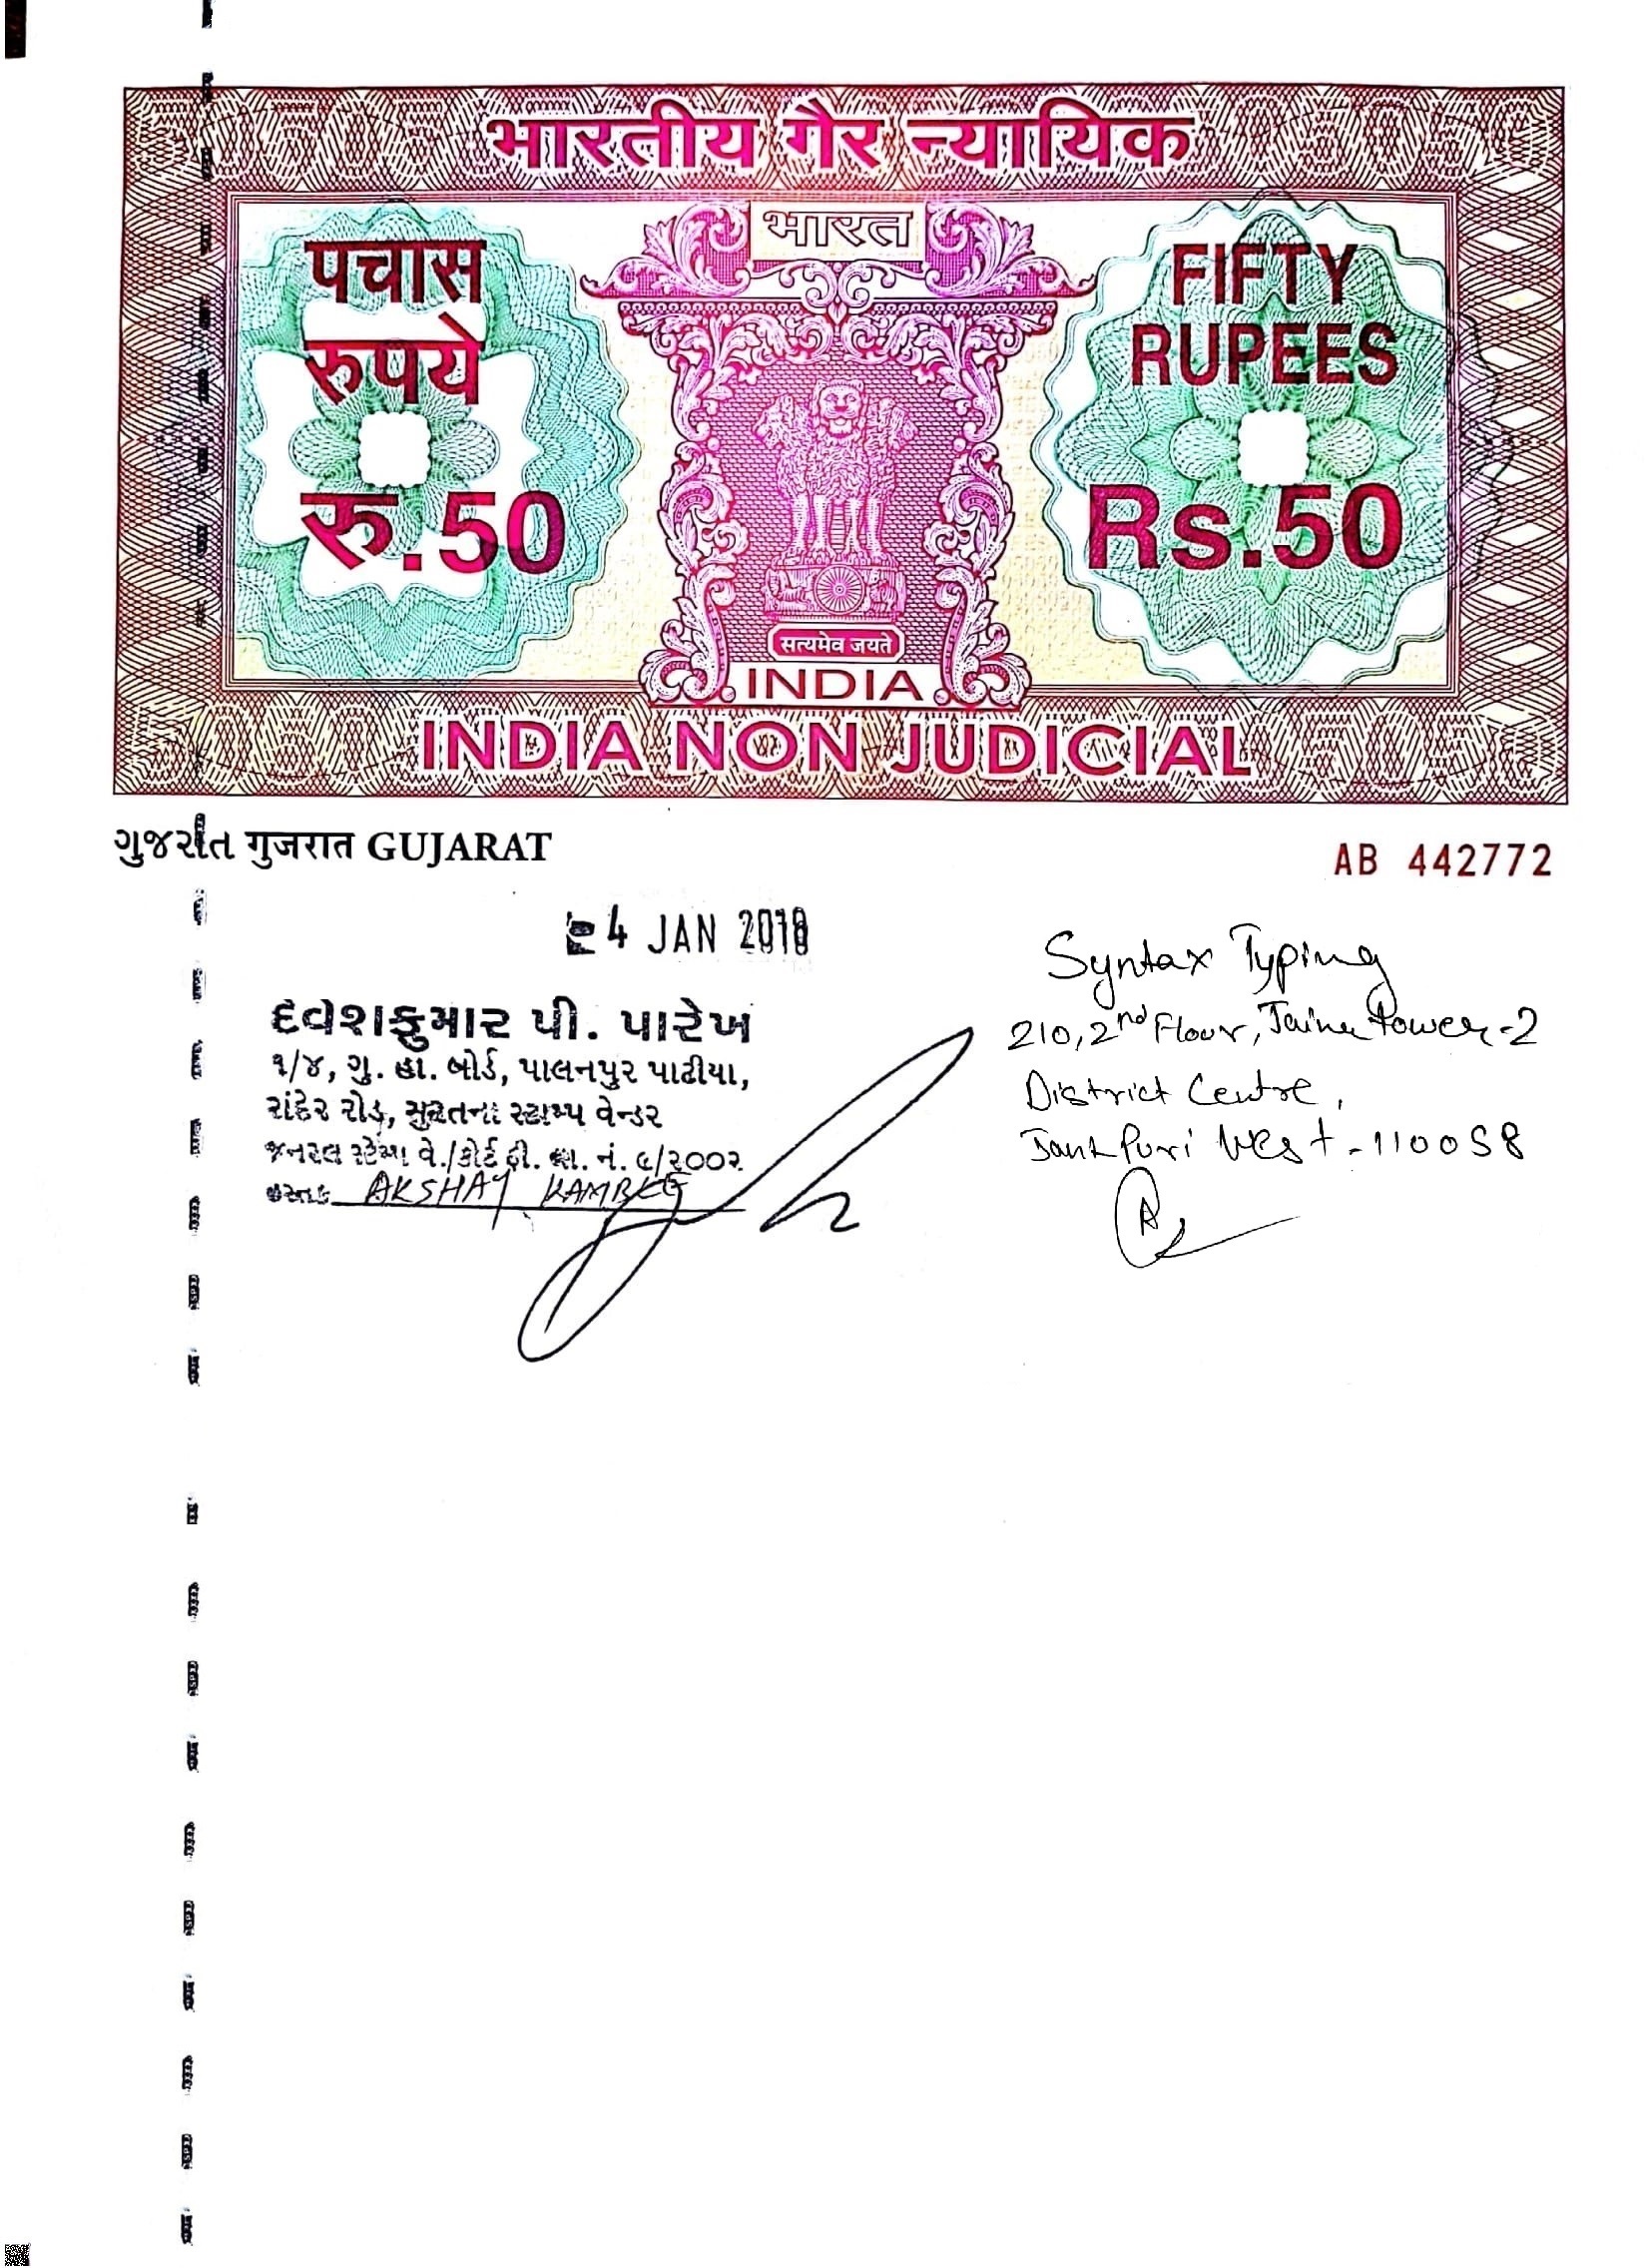 भारतीय गैर न्यायिक
भारत
पचास
रुपये
रु.50
FIFTY
RUPEES
Rs.50
सत्यमेव जयते
INDIA
INDIA NON JUDICIAL
ગુજરાત गुजरात GUJARAT
AB 442772
4 JAN 2018
દેવેશકુમાર પી. પારેખ
૧/૪, ગુ. હા. બોર્ડ, પાલનપુર પાટીયા,
રાંદેર રોડ, સુરતના સ્ટામ્પ વેન્ડર
જનરલ સ્ટેમ્પ વે./કોર્ટ ફી. લા. નં. ૬/૨૦૦૨
AKSHAY KAMBLE
Syntax Typing
210, 2nd Floor, Jaina tower-2
District Centre,
Janakpuri West - 110058